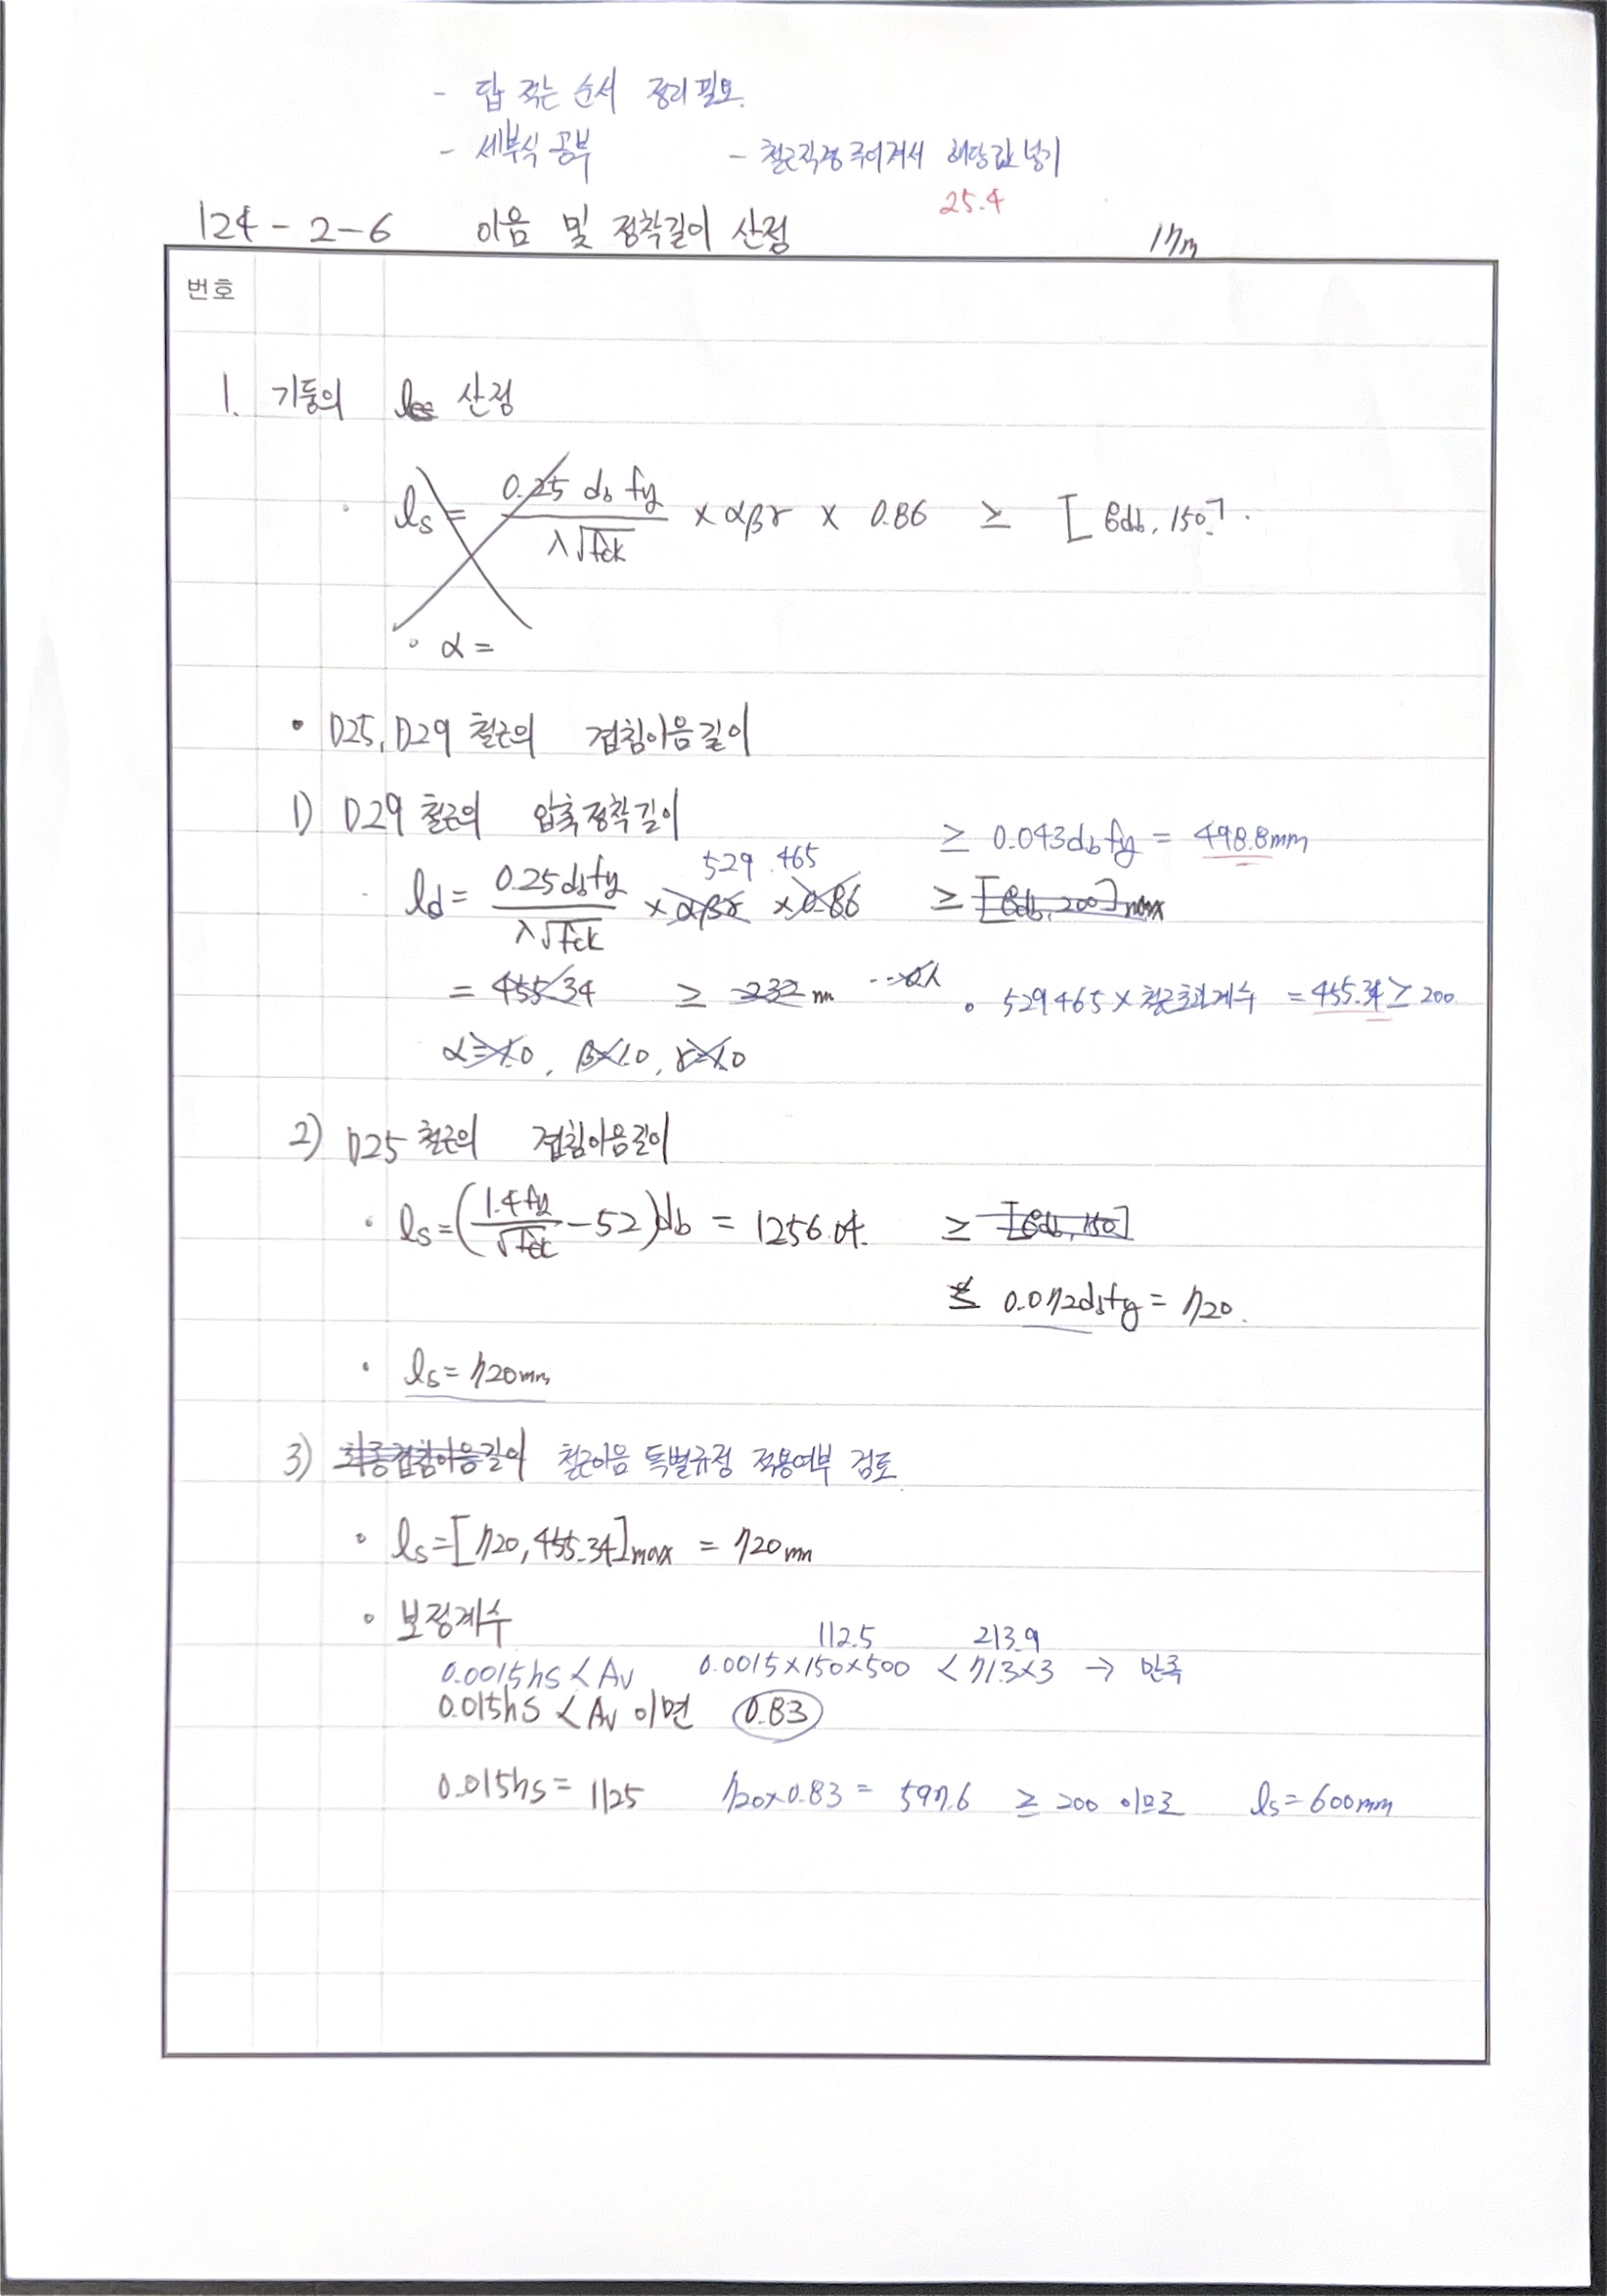 - 답 적는 순서 정리 필요.
- 세부식 공부 - 철근직경 주어져서 해당값 넣기
25.4
124-2-6 이음 및 정착길이 산정 17m
번호
1. 기둥의 산정
ls = 0.25 db fy / λ√fck × αβγ × 0.86 ≥ [8db, 150].
• α =
• D25, D29 철근의 겹침이음길이
1) D29 철근의 압축정착길이 ≥ 0.043dbfy = 498.8mm
529.465
· ld = 0.25dbfy / λ√fck × αβγ × 0.86 ≥ [8db, 200]max
= 455.34 ≥ 232 m
• 529.465 × 철근초과계수 = 455.34 ≥ 200
α=1.0, β=1.0, γ=1.0
2) D25 철근의 겹침이음길이
• ls = (1.4fy / √fck - 52)db = 1256.04. ≥ [8db, 150]
≤ 0.072dbfy = 720.
• ls = 720mm
3) 최종겹침이음길이 철근이음 특별규정 적용여부 검토
• ls = [720, 455.34]max = 720mm
• 보정계수
112.5 213.9
0.0015hs < Av 0.0015×150×500 < 71.3×3 → 만족
0.015hs < Av 이면 0.83
0.015hs = 1125 720×0.83 = 597.6 ≥ 200 이므로 ls = 600mm